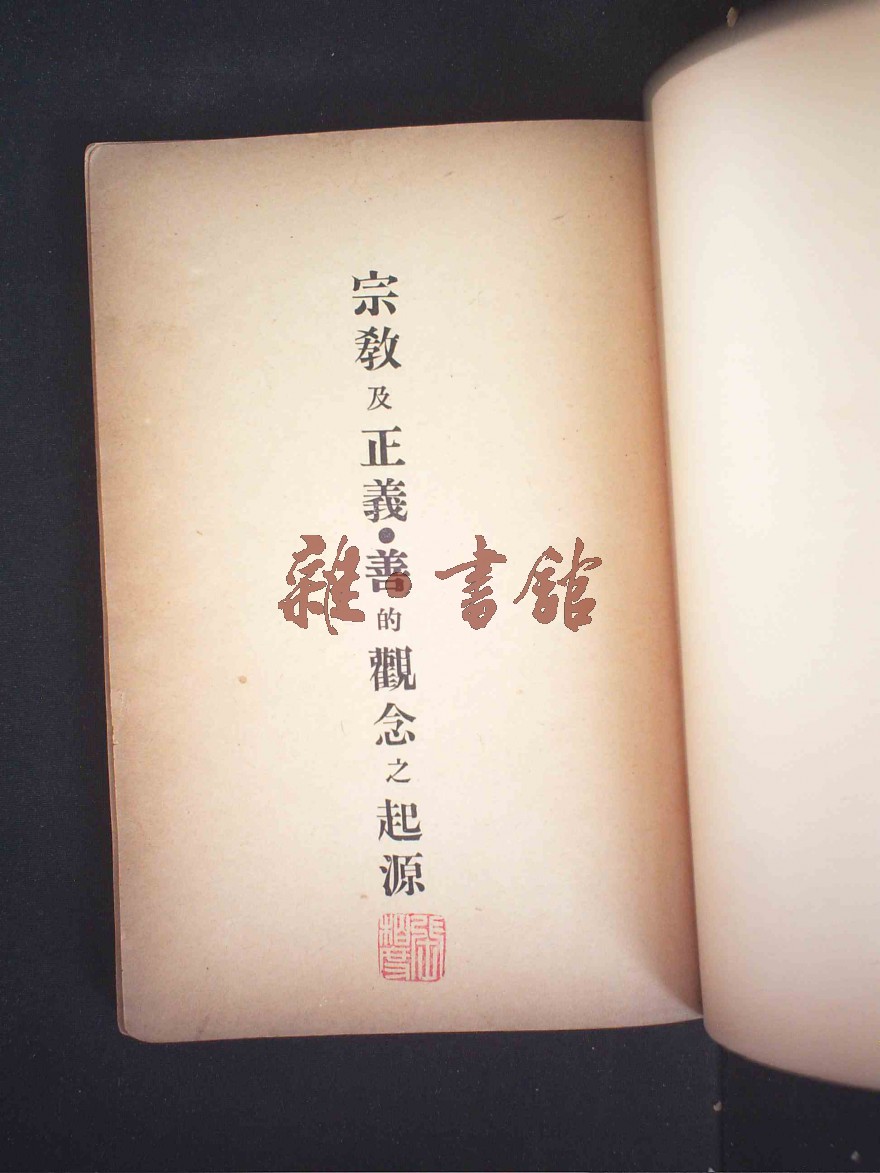 宗教及正義•善的觀念之起源
雜•書館